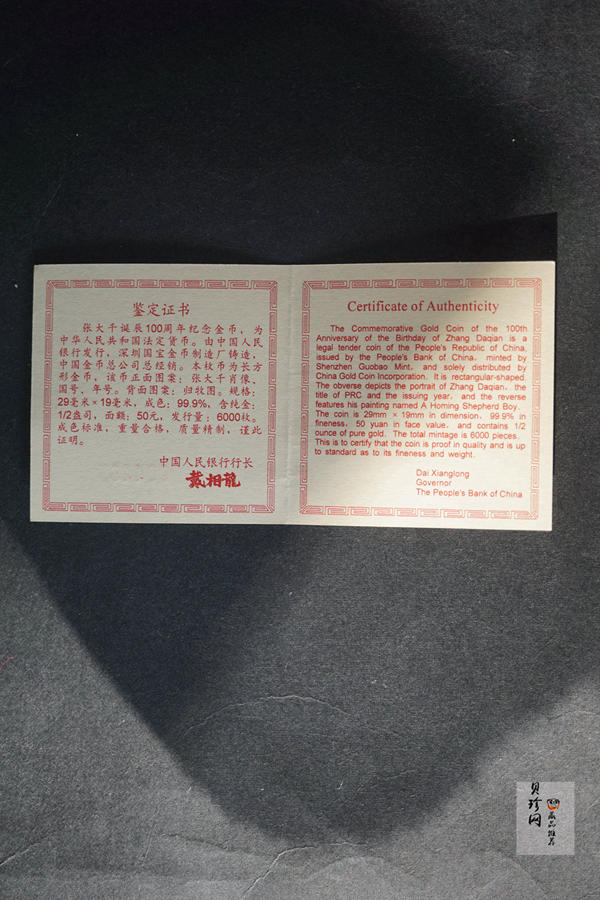 鉴定证书
张大千诞辰100周年纪念金币，为
中华人民共和国法定货币。由中国人民
银行发行，深圳国宝金币制造厂铸造，
中国金币总公司总经销。本枚币为长方
形金币，该币正面图案：张大千肖像、
国号、年号。背面图案：归牧图。规格：
29毫米×19毫米，成色：99.9%，含纯金：
1/2盎司，面额：50元，发行量：6000枚。
成色标准，重量合格，质量精制，谨此
证明。
中国人民银行行长
戴相龍
Certificate of Authenticity
The Commemorative Gold Coin of the 100th
Anniversary of the Birthday of Zhang Daqian is a
legal tender coin of the People's Republic of China,
issued by the People's Bank of China, minted by
Shenzhen Guobao Mint, and solely distributed by
China Gold Coin Incorporation. It is rectangular-shaped.
The obverse depicts the portrait of Zhang Daqian, the
title of PRC and the issuing year, and the reverse
features his painting named A Homing Shepherd Boy.
The coin is 29mm ×19mm in dimension, 99.9% in
fineness, 50 yuan in face value, and contains 1/2
ounce of pure gold. The total mintage is 6000 pieces.
This is to certify that the coin is proof in quality and is up
to standard as to its fineness and weight.
Dai Xianglong
Governor
The People's Bank of China
贝珍网
藏品推荐